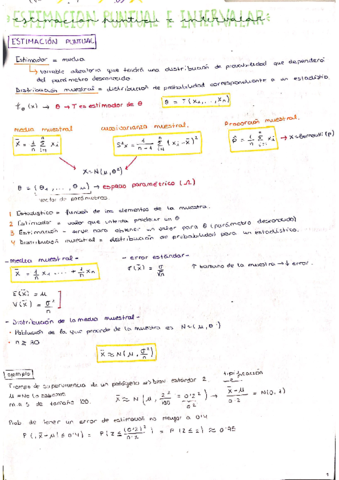 ESTIMACIÓN PUNTUAL E INTERVALAR
ESTIMACIÓN PUNTUAL
Estimador = media
variable aleatoria que tendrá una distribución de probabilidad que dependerá
del parámetro desconocido
Distribución muestral = distribución de probabilidad correspondiente a un estadístico.
f_θ(x) → θ → T es estimador de θ
θ = T(x₁, ..., xₙ)
media muestral
cuasivarianza muestral
Proporción muestral
x̄ = 1/n Σ xᵢ
S²x = 1/(n-1) Σ (xᵢ - x̄)²
p̂ = 1/n Σ xᵢ → X~Bernoulli (p)
X~N(μ, σ²)
θ = (θ₁, ..., θ) → espacio paramétrico (Ω)
vector de parámetros
1 Estadístico = función de los elementos de la muestra.
2 Estimador = valor que intenta predecir un θ
3 Estimación = para obtener un valor para θ (parámetro desconocido)
4 Distribución muestral = distribución de probabilidad para un estadístico.
- media muestral -
- error estándar -
x̄ = 1/n x₁ + ... + 1/n xₙ
σ(x̄) = σ/√n
↑ tamaño de la muestra → ↓ error.
E(x̄) = μ
V(x̄) = σ²/n
- Distribución de la media muestral -
- Población de la que procede la muestra es N~(μ, σ²)
- n ≥ 30
x̄ ≈ N(μ, σ²/n)
ejemplo
Tiempo de supervivencia de un patógeno desviación estándar 2.
tipificación
m.a.s de tamaño 100.
x̄ ≈ N (μ, 2²/100 = 0'2²) → (x̄-μ)/0'2 ≈ N(0,1)
Prob de tener un error de estimación no mayor a 0'4